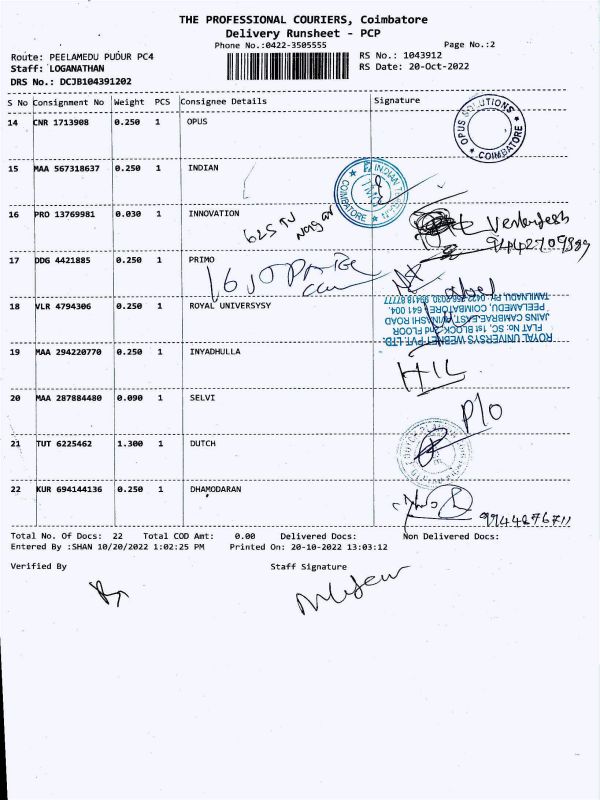 THE PROFESSIONAL COURIERS, Coimbatore
Delivery Runsheet - PCP
Phone No.:0422-3505555 Page No.:2
Route: PEELAMEDU PUDUR PC4 RS No.: 1043912
Staff: LOGANATHAN RS Date: 20-Oct-2022
DRS No.: DCJB104391202
S No Consignment No Weight PCS Consignee Details Signature
14 CNR 1713908 0.250 1 OPUS
OPUS SOLUTIONS
★ COIMBATORE ★
15 MAA 567318637 0.250 1 INDIAN
INDIAN
COIMBATORE
16 PRO 13769981 0.030 1 INNOVATION
625 TV
Nagar
Venkatesh
17 DDG 4421885 0.250 1 PRIMO
18 VLR 4794306 0.250 1 ROYAL UNIVERSYSY
ROYAL UNIVERSYS WEBNET PVT. LTD.
FLAT No: 5C, 1st BLOCK, 2nd FLOOR
JAINS CAMBRAE EAST, AVINASHI ROAD
PEELAMEDU, COIMBATORE - 641 004.
19 MAA 294220770 0.250 1 INYADHULLA
20 MAA 287884480 0.090 1 SELVI
P/O
21 TUT 6225462 1.300 1 DUTCH
22 KUR 694144136 0.250 1 DHAMODARAN
Total No. Of Docs: 22 Total COD Amt: 0.00 Delivered Docs: Non Delivered Docs:
Entered By :SHAN 10/20/2022 1:02:25 PM Printed On: 20-10-2022 13:03:12
Verified By Staff Signature